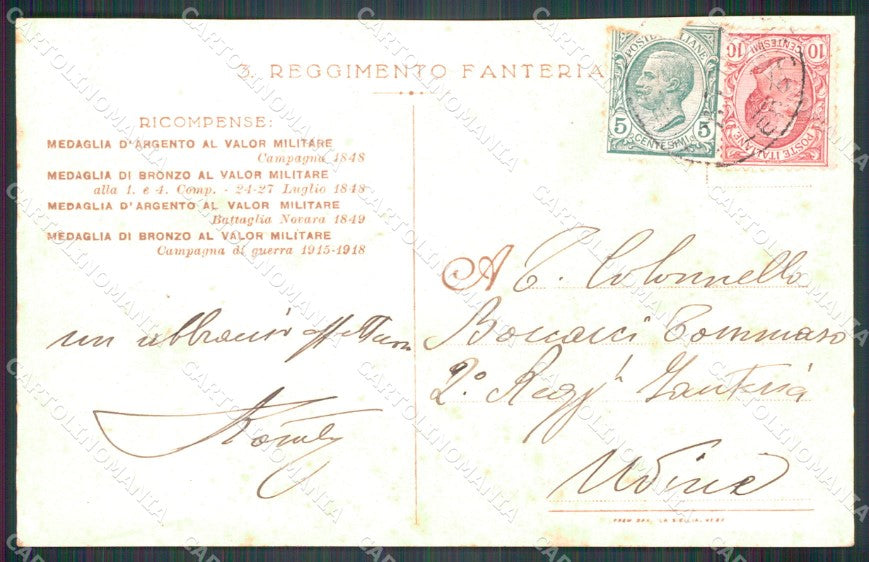 3. REGGIMENTO FANTERIA
RICOMPENSE:
MEDAGLIA D'ARGENTO AL VALOR MILITARE
Campagna 1848
MEDAGLIA DI BRONZO AL VALOR MILITARE
alla 1. e 4. Comp. - 24-27 Luglio 1848
MEDAGLIA D'ARGENTO AL VALOR MILITARE
Battaglia Novara 1849
MEDAGLIA DI BRONZO AL VALOR MILITARE
Campagna di guerra 1915-1918
un abbraccio
POSTE ITALIANE
5 5
CENTESIMI
10 10
CENTESIMI
POSTE ITALIANE
A T. Colonnello
Tommaso
2° Regg. Fanteria
Udine
CARTOLINOMANIA